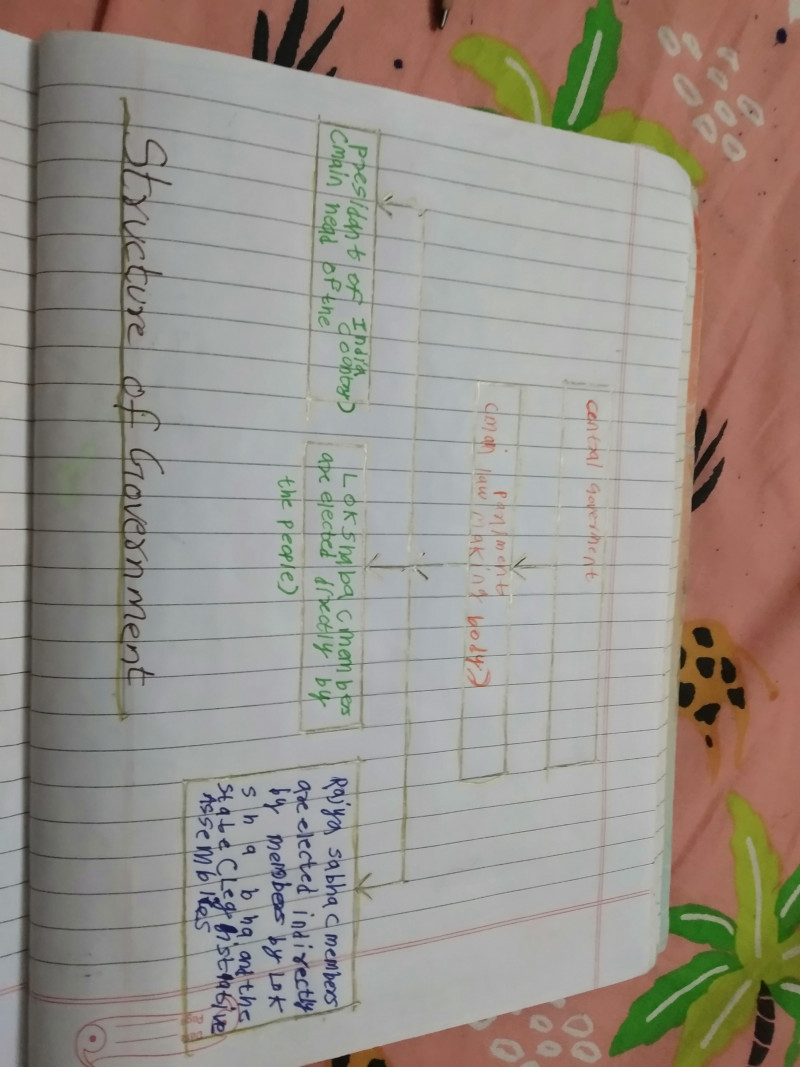 central goverment
parilment
(main law making body)
presidant of India
(main head of the contry)
Lok Shaba (members
are elected directly by
the people)
Rajya sabha (members
are elected indirectly
by members by Lok
s h a b ha and the
state (Legiststative
Assemblies
Structure of Government